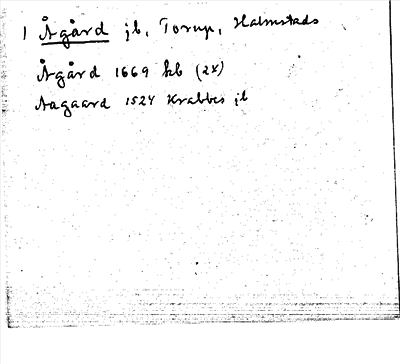 1 Ågård jb, Torup, Halmstads
Ågård 1669 kb (2x)
Aagaard 1524 Krabbes jb